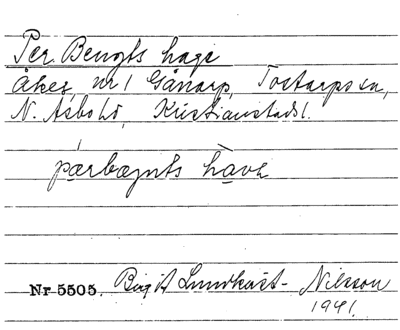 Per Bengts hage
Åker, nr 1 Gånarp, Tostarps sn,
N. Åsbo hd, Kristianstads l.
pærbæŋts hàvə
Nr 5505. Birgit Lundkvist-Nilsson
1941.